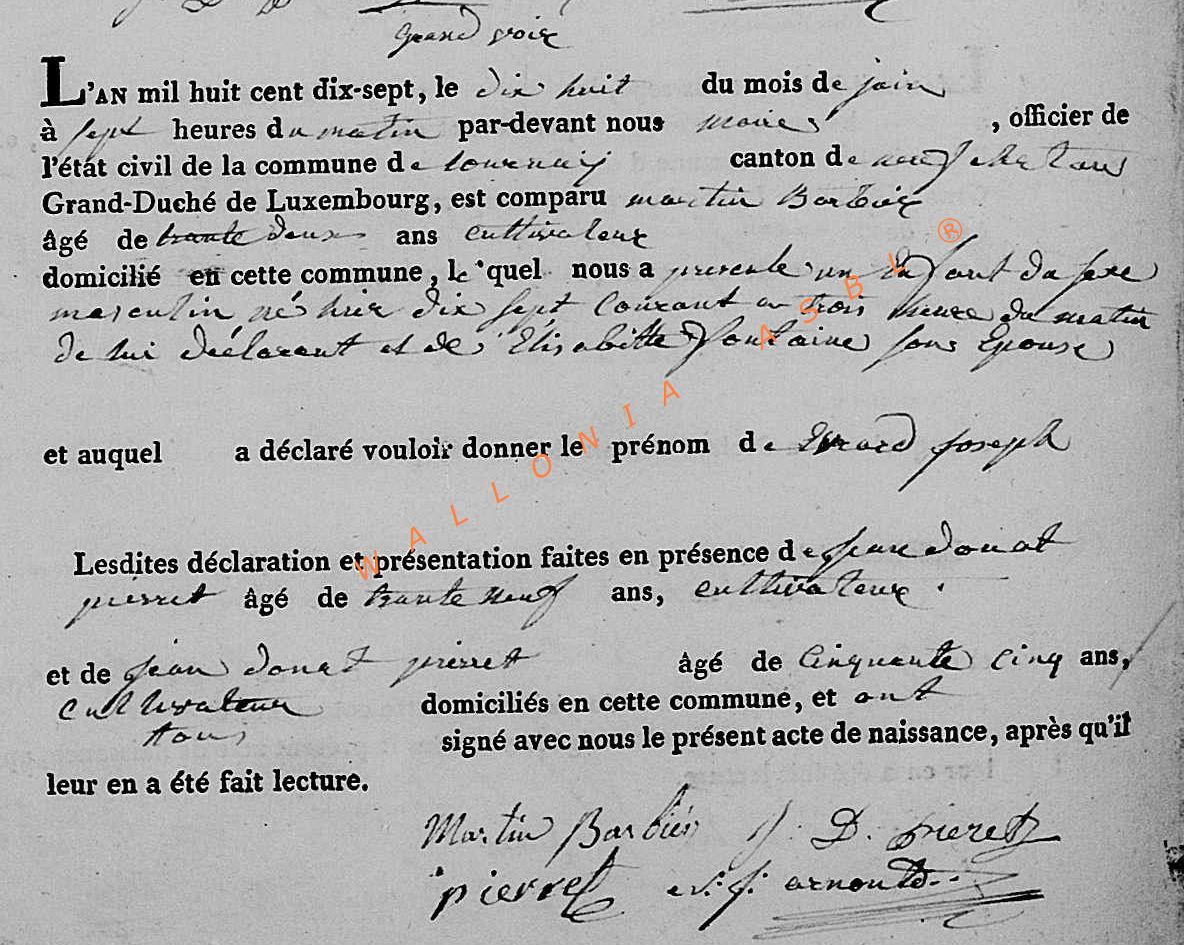 grand voir
L'AN mil huit cent dix-sept, le dix huit du mois de juin
à sept heures du matin par-devant nous maire , officier de
l'état civil de la commune de tournay canton de neufchateau
Grand-Duché de Luxembourg, est comparu martin Barbier
âgé de trante deux ans cultivateur
domicilié en cette commune, le quel nous a presenté un enfant du sexe
masculin né hier dix sept courant a trois heure du matin
de lui déclarant et de Elisabette fontaine sons Epouse
et auquel a déclaré vouloir donner le prénom de Evrard joseph
Lesdites déclaration et présentation faites en présence de jean donat
pierret âgé de trante neuf ans, cultivateur
et de jean donat pierret âgé de Cinquante cinq ans,
cultivateur domiciliés en cette commune, et ont
tous signé avec nous le présent acte de naissance, après qu'il
leur en a été fait lecture.
Martin Barbier J. D. pieret
pierret arnould
WALLONIA ASBL ®